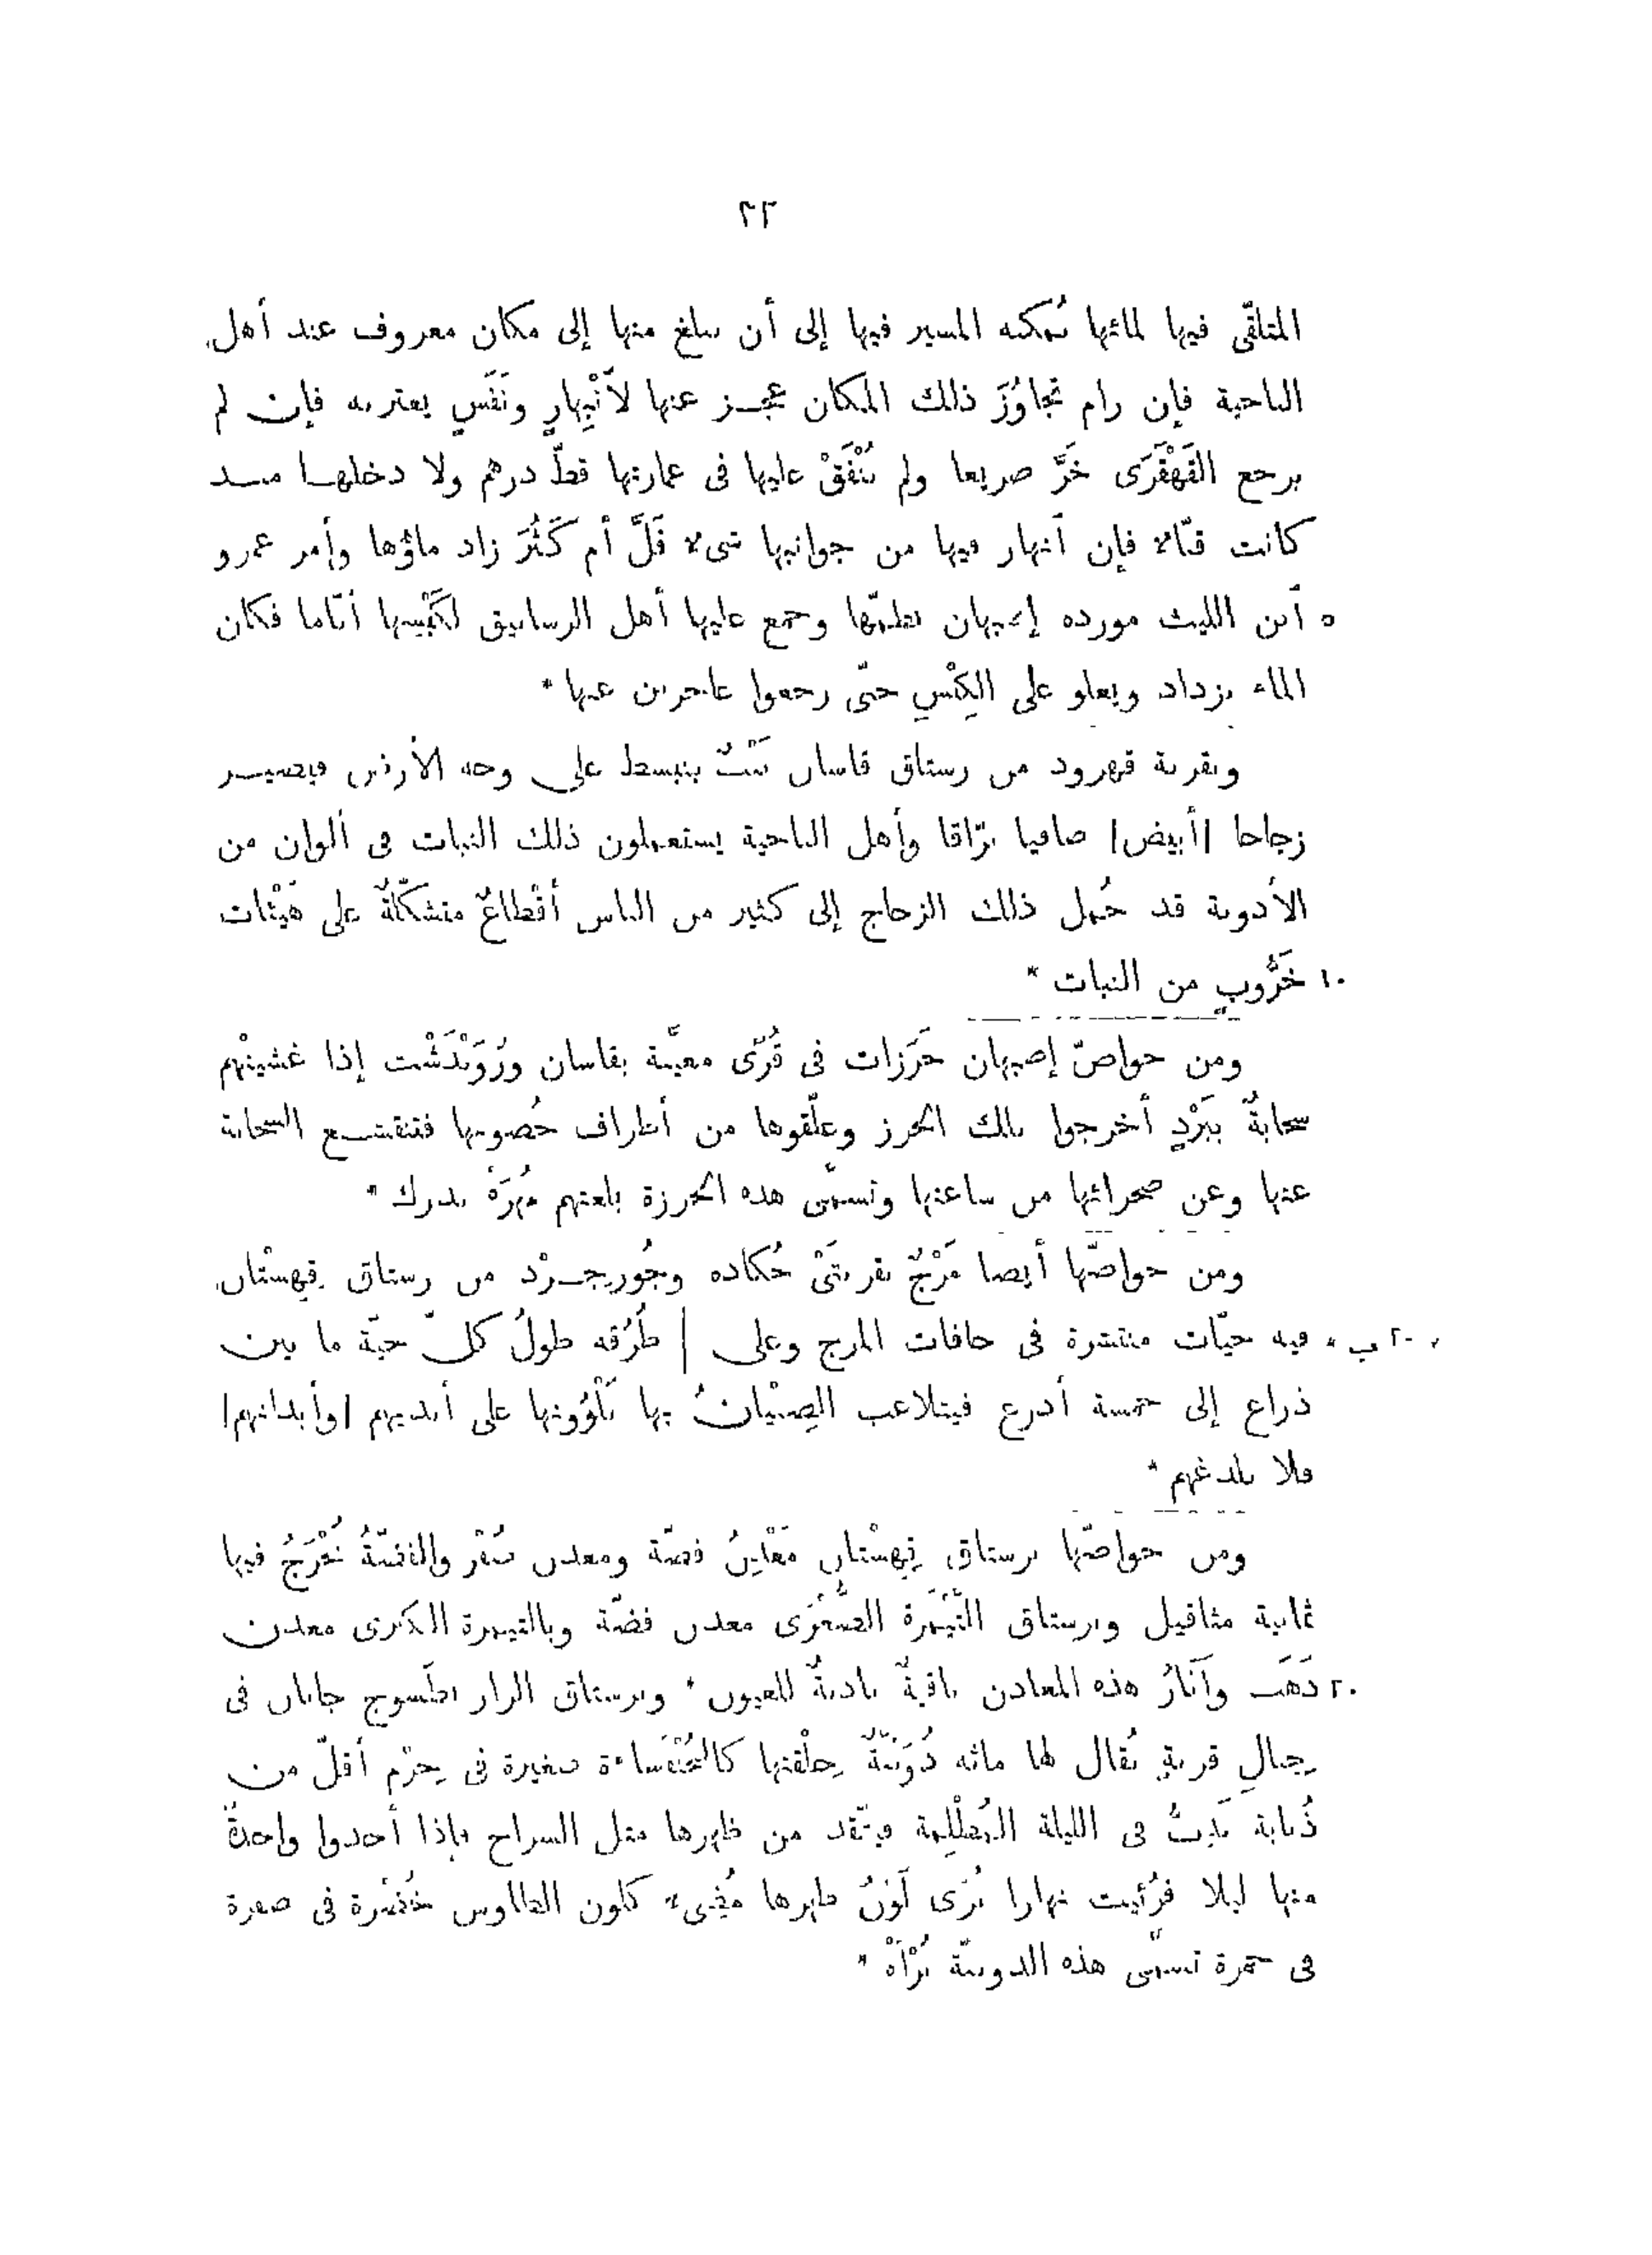 ٣٢
المتلقّى فيها لمائها يُمكنه المسير فيها إلى أن يبلغ منها إلى مكان معروف عند أهل
الناحية فإن رام تجاوُزَ ذلك المكان عجز عنها لآنْبِهارٍ ونَفَسٍ يعتريه فإن لم
يرجع القَهْقَرَى خَرَّ صريعا ولم يُنْفَقْ عليها فى عمارتها قطّ درهم ولا دخلها منذ
كانت قنّاء فإن آنهار فيها من جوانبها شىء قَلَّ أم كَثُرَ زاد ماؤها وأمر عمرو
٥ آبن الليث مورده إصبهان بطمّها وجمع عليها أهل الرساتيق لكَبْسها أيّاما فكان
الماء يزداد ويعلو على الكِبْسِ حتّى رجعوا عاجزين عنها *
وبقرية قهرود من رستاق قاسان نَبْتٌ ينبسط على وجه الأرض فيصير
زجاجا |أبيض| صافيا برّاقا وأهل الناحية يستعملون ذلك النبات فى ألوان من
الأدوية قد حُمل ذلك الزجاج إلى كثير من الناس أقْطاعٌ متشكّلةٌ على هَيْئات
١٠ خَرُّوبٍ من النبات *
ومن خواصّ إصبهان خَرَزات فى قُرًى معيَّنة بقاسان ورُوَيْدَشْت إذا غشيتْهم
سحابةٌ ببَرْدٍ أخرجوا تلك الخرز وعلّقوها من أطراف حُصونها فتنقشع السحابة
عنها وعن صحرائها من ساعتها وتسمّى هذه الخرزة بلغتهم مُهرَهْ تدرك *
ومن خواصّها أيضا مَرْجٌ بقريتَىْ حُكاده وجُوربجرْد من رستاق قِهِسْتان
٢٠ ب فيه حيّات منتشرة فى حافات المرج وعلى | طُرُقه طولُ كلّ حيّة ما بين
ذراع إلى خمسة أذرع فيتلاعب الصِبْيانُ بها يَلْوُونها على أيديهم |وأبدانهم|
فلا يلدغهم *
ومن خواصّها برستاق قِهِسْتان مَعْدِنُ فضّة ومعدن صُفْر والفضّةُ تُخْرَجُ فيها
ثمانية مثاقيل وبرستاق التَّيْمَرة الصُّغْرَى معدن فضّة وبالتيمرة الكبرى معدن
٢٠ ذَهَب وآثارُ هذه المعادن باقيةٌ باديةٌ للعيون * وبرستاق الرار بطَسوج جانان فى
جبالِ قريةٍ يُقال لها ماثه دُوَيْبَّةٌ خِلْقتها كالخُنْفَساءة صغيرة فى جِرْم أقلّ من
ذُبابة تَدِبُّ فى الليلة المُظْلِمة فيتّقد من ظهرها مثل السراج فإذا أخذوا واحدةً
منها ليلا فرُئيت نهارا يُرَى لَوْنُ ظهرها مُضِىء كلون الطاوس خُضْرة فى صفرة
فى حمرة تسمّى هذه الدويبّة بُرْآهْ *